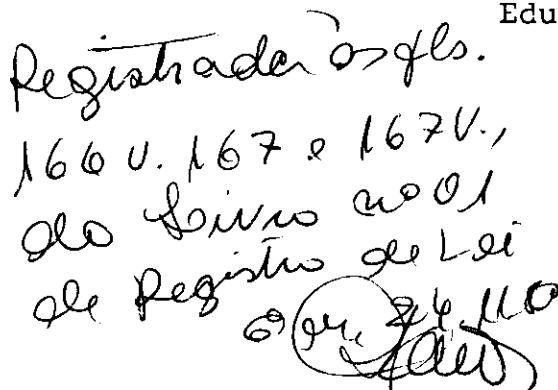 Edu
Registrada às fls.
166 v. 167 e 167v.,
do Livro nº 01
de Registro de Lei
em, 24.110